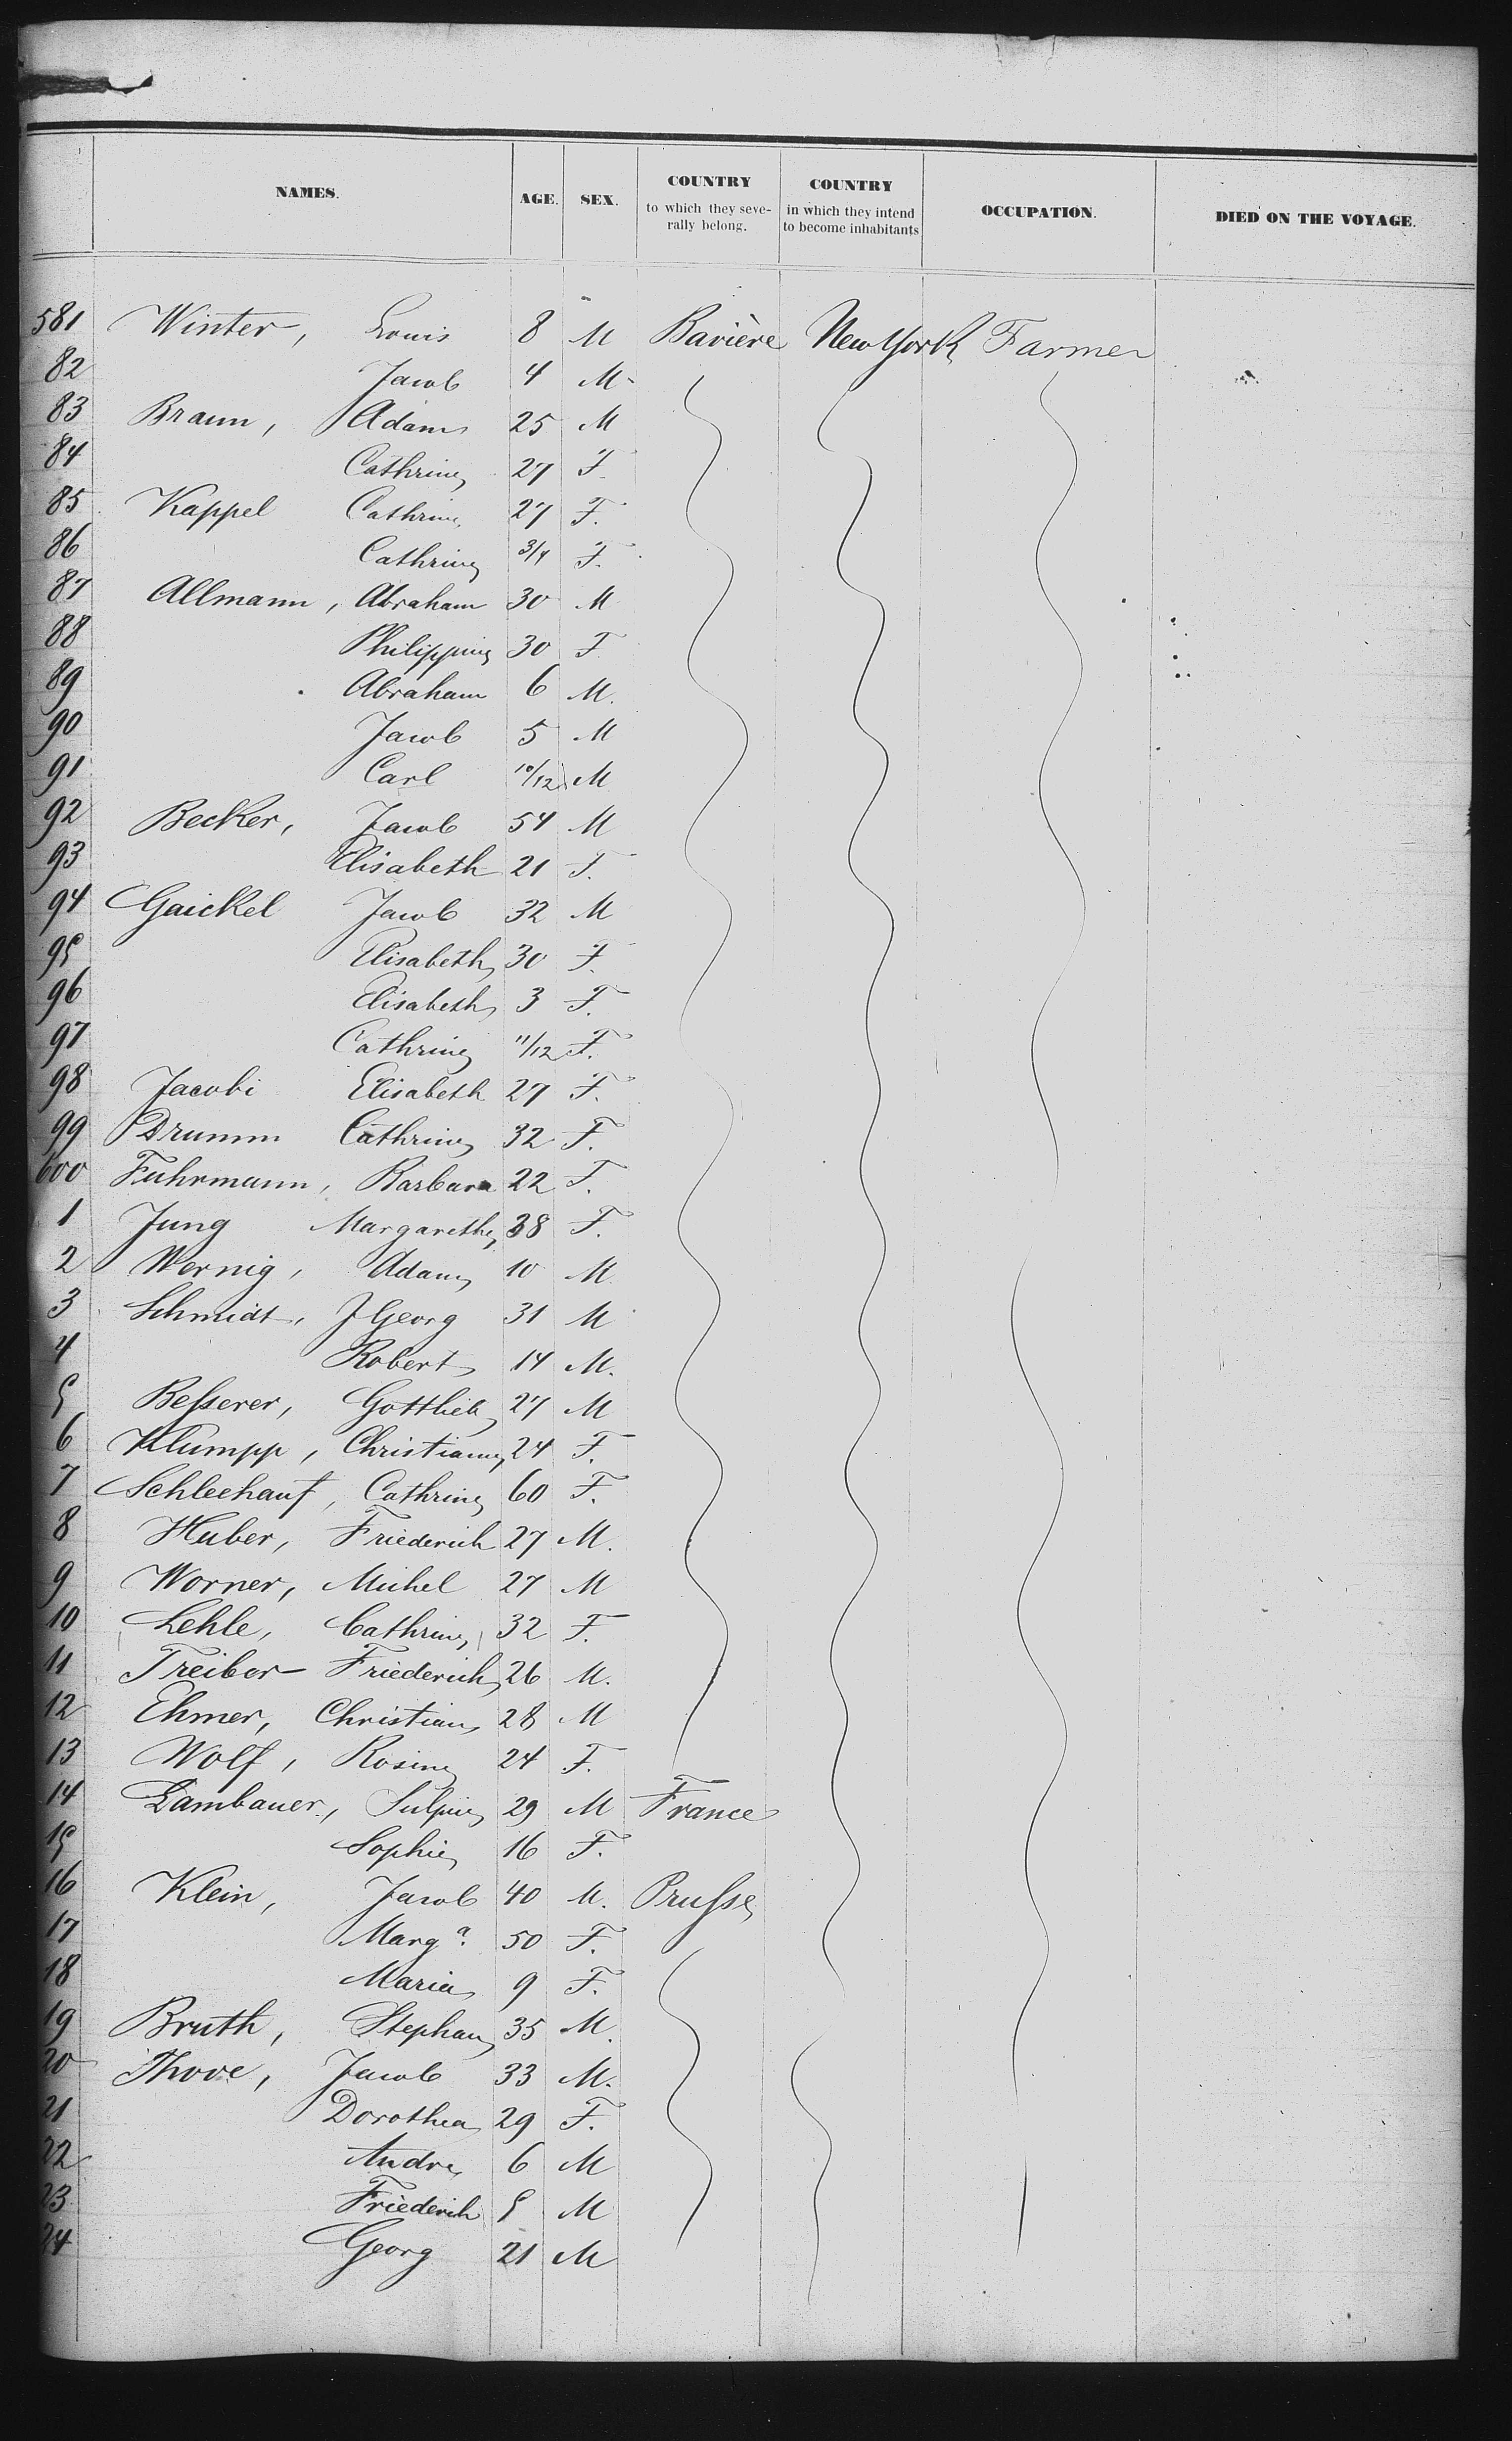 NAMES. AGE. SEX. COUNTRY to which they seve- rally belong. COUNTRY in which they intend to become inhabitants OCCUPATION. DIED ON THE VOYAGE.
581 Winter, Louis 8 M Bavière New York Farmer
82 Jacob 4 M
83 Braun, Adam 25 M
84 Cathrine 27 F.
85 Kappel Cathrine 27 F.
86 Cathrine 3/4 F.
87 Allmann, Abraham 30 M
88 Philippine 30 F
89 Abraham 6 M.
90 Jacob 5 M
91 Carl 10/12 M
92 Becker, Jacob 54 M
93 Elisabeth 21 F.
94 Gaickel Jacob 32 M
95 Elisabeth 30 F.
96 Elisabeth 3 F.
97 Cathrine 11/12 F.
98 Jacobi Elisabeth 27 F.
99 Drumm Cathrine 32 F.
600 Fuhrmann, Barbara 22 F.
1 Jung Margarethe 38 F.
2 Wernig, Adam 10 M
3 Schmidt, J Georg 31 M
4 Robert 14 M.
5 Besserer, Gottlieb 27 M
6 Klumpp, Christiane 24 F.
7 Schleehauf, Cathrine 60 F.
8 Huber, Friederich 27 M.
9 Worner, Michel 27 M
10 Lehle, Cathrine 32 F.
11 Treiber Friederich 26 M.
12 Ehmer, Christian 28 M
13 Wolf, Rosine 24 F.
14 Lambauer, Sulpice 29 M France
15 Sophie 16 F.
16 Klein, Jacob 40 M. Prusse
17 Marga. 50 F.
18 Maria 9 F.
19 Bruth, Stephan 35 M.
20 Thove, Jacob 33 M.
21 Dorothea 29 F.
22 Andre 6 M
23 Friederich 5 M
24 Georg 21 M